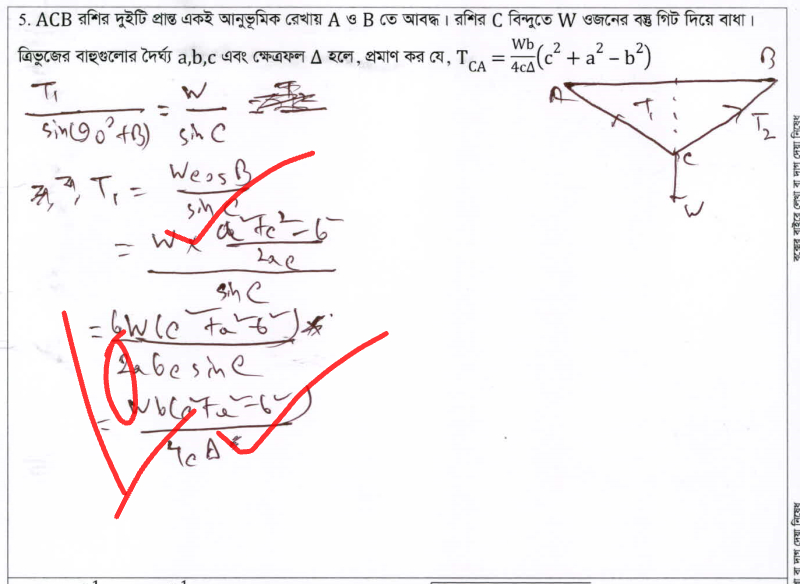 5. ACB রশির দুইটি প্রান্ত একই আনুভূমিক রেখায় A ও B তে আবদ্ধ। রশির C বিন্দুতে W ওজনের বস্তু গিট দিয়ে বাধা।
ত্রিভুজের বাহুগুলোর দৈর্ঘ্য a,b,c এবং ক্ষেত্রফল Δ হলে, প্রমাণ কর যে, T_CA = Wb/4cΔ (c² + a² − b²)
T₁/sin(90°+B) = W/sin C
T₁ = W cos B/sin C
= W × (a²+c²−b²)/2ac / sin C
= bW(c²+a²−b²)/2abc sin C
= Wb(c²+a²−b²)/4cΔ
A B
T₁ T₂
C
W